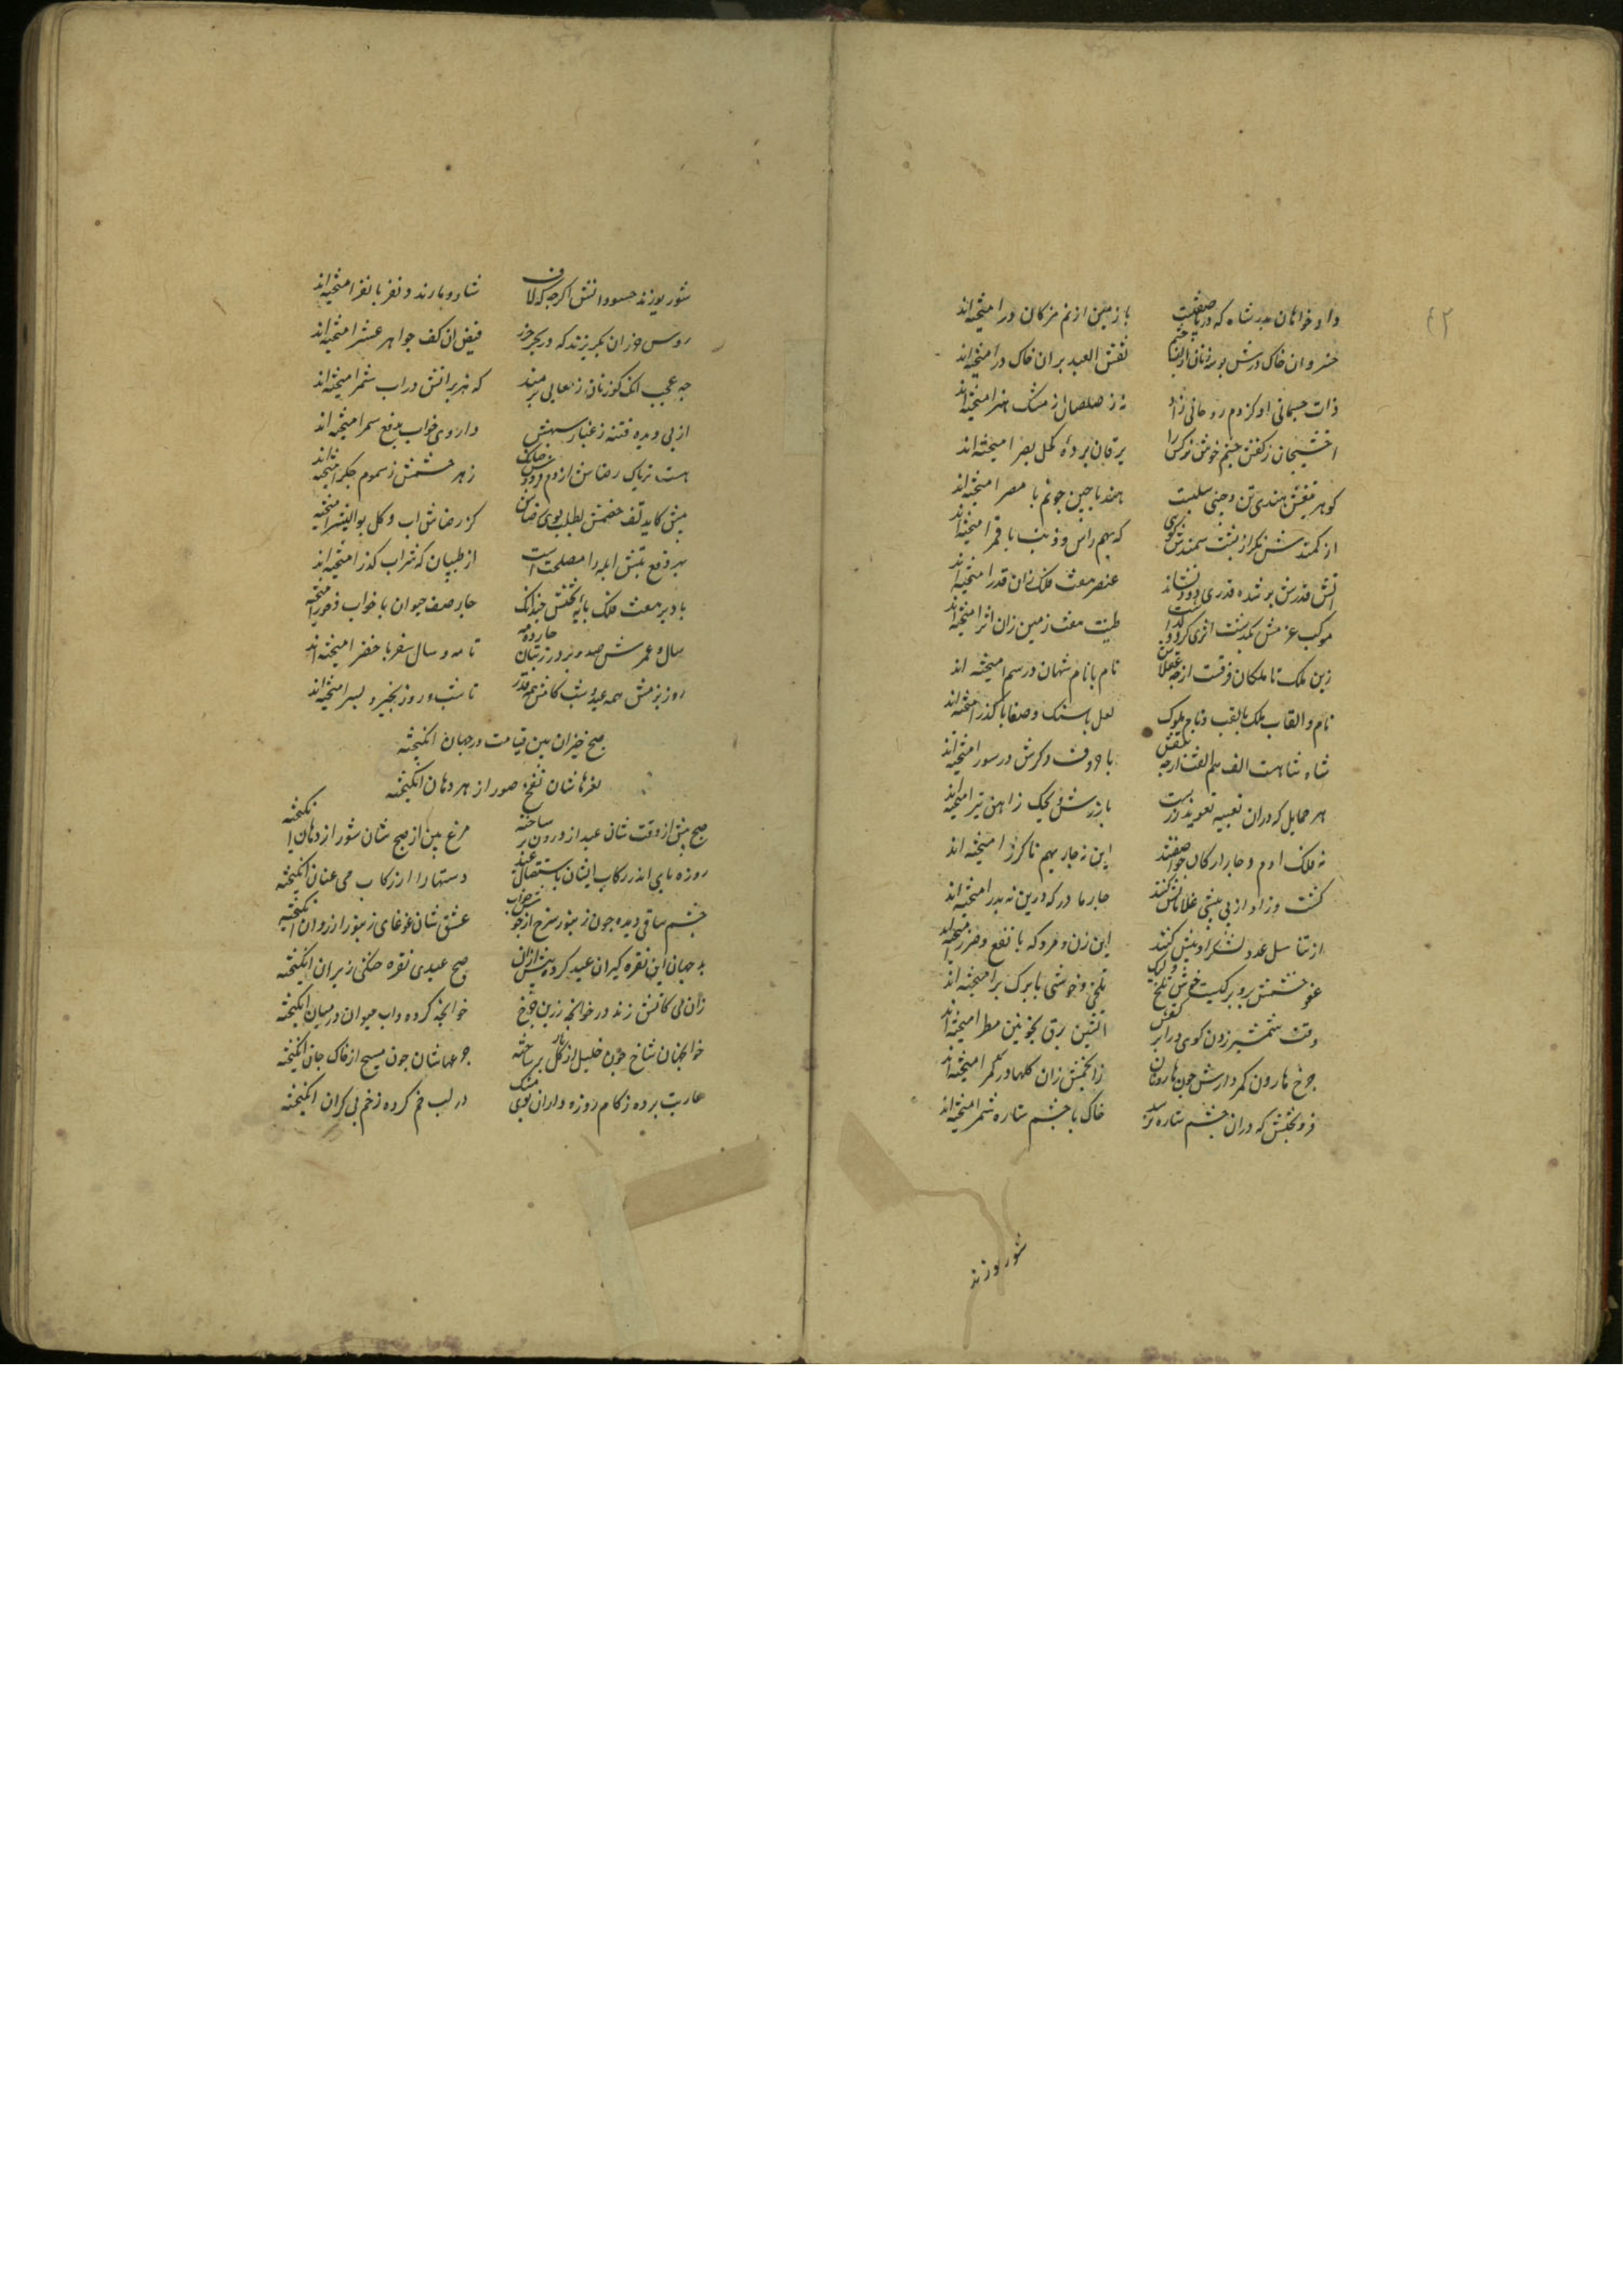 ۴۲
داد خواهان بدر شاه که دریا صفتیت با زمین از نم مژکان در امیخته‌اند
خسروان خاک درش بوسه زنان از لبها نقش العبد بران خاک در امیخته‌اند
ذات جسمانی او کز دم روحانی زاد نه ز صلصال ز مشک هنر امیخته‌اند
اخشیجان ز کفش چشم خوش نرکس را یرقان برده کحل بصر امیخته‌اند
کوهر تیغش هندی تن و چینی سلبست هند با چین جوئم با مصر امیخته‌اند
از کمندش نکر از پشت سمندش که بهم راس و ذنب با قمر امیخته‌اند
اتش قدرش بر شده قدری دود نشاند عنصر هفت فلک زان قدر امیخته‌اند
موکب عزمش بکذشت اثری کرد طینت هفت زمین زان اثر امیخته‌اند
زین ملک تا ملکان فرقست ارچه نام با نام شهان در سمر امیخته اند
نام و القاب ملک با لقب و نام ملوک لعل با سنک و صفا با کذر امیخته‌اند
شاه شاهست الف هم الفت ارچه با دف و کرش در سور امیخته‌اند
هر حمایل که دران تعبیه تعویذ زرست با زرش ویحک ز اهن تبر امیخته‌اند
نه فلک ادم و چار ارکان حوا صفتند این نه چار بهم ناکزر امیخته اند
کشت و زاد از پی بیشی غلامانش کنند چار مادر که درین نه پدر امیخته‌اند
از تناسل عدد لشکر او بیش کنند این زن و مرد که با نفع و ضرر امیخته‌اند
عفو خشمش برو برکیست خوش و تلخ تلخی و خوشی با برک بر امیخته‌اند
وقت شمشیر زدن کوی در ابر کفش اتشین برق بخونین مطر امیخته‌اند
چرخ هارون کمر دارش چون هارونان ز انجمش زان کلها در کمر امیخته‌اند
فر بختش که دران چشم ستاره نرسد خاک با چشم ستاره شمر امیخته‌اند
شور بوزند
شور بوزند حسود انش اکرچه که لاف شار و مارند و نفر با نفر امیخته‌اند
روس خزران بکریزند که در بحر خزر فیض ان کف جواهر عشر امیخته‌اند
چه عجب انک کوزنان ز لعابی برمند که هزبرانش در اب شمر امیخته‌اند
از پی دیده فتنه ز غبار سپهش داروی خواب بدفع سهر امیخته‌اند
هست تریاک رضاش از دم زهر خشمش ز سموم جکر امیخته‌اند
پیش کاید تف خشمش بطلب بوی رضاش کز رضاش اب و کل بوالبشر امیخته
بهر دفع تبش ابله را مصلحت است از طبیبان که شراب کدر امیخته‌اند
باد بر هفت فلک پایه تختش چندانک چار صف حیوان با خواب و خور امیخته
سال و عمرش صد و بر در ز بتان چارده مه تا مه و سال سفر با خضر امیخته‌اند
روز بزمش همه عید و شب کامش همه قدر تا شب و روز بخیر و بسر امیخته‌اند
صبح خیزان بین قیامت در جهان انکیخته
نعرهاشان نفخ صور از هر دهان انکیخته
صبح پیش از وقت شان عید از درون بر ساخته مرغ پیش از صبح شان شور از دهان انکیخته
روزه پای اندر رکاب ایشان باستقبال عید دستها را از رکاب می عنان انکیخته
چشم ساقی دیده چون زنبور سرخ از جوش خواب عشق شان غوغای زنبور از روان انکیخته
بر جهان این نقره کیران عید کرده پیش ازان صبح عیدی نقره خنکی زیر ران انکیخته
زان می کاتش زند در خوانچه زرین چرخ خوانچه کرده واب حیوان در میان انکیخته
خوانچهاشان شاخ چون خلیل از نار کل بر ساخته جرعهاشان چون مسیح از خاک جان انکیخته
عاریت برده ز کام روزه داران بوی مشک در لب خم کرده زخم بی کران انکیخته